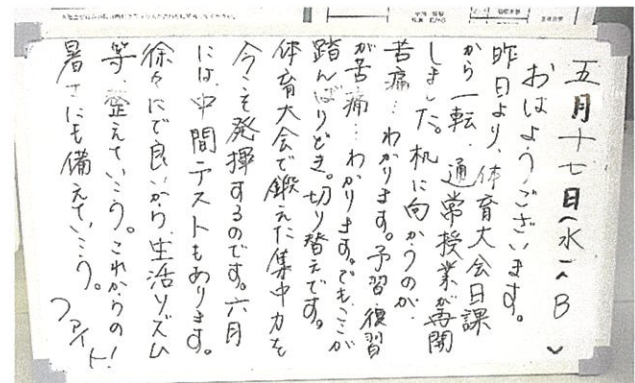 五月十七日(水)(B)
おはようございます。
昨日より、体育大会日課
から一転、通常授業が再開
しました。机に向かうのが
苦痛…わかります。予習復習
が苦痛…わかります。でも、ここが
踏んばりどき。切り替えです。
体育大会で鍛えた集中力を
今こそ発揮するのです。六月
には、中間テストもあります。
徐々にで良いから、生活リズム
等、整えていこう。これからの
暑さにも備えていこう。
ファイト!